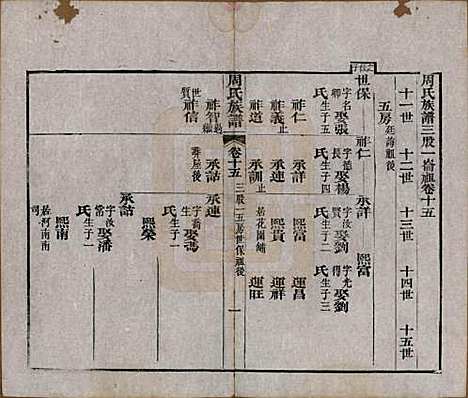 周氏族譜三股一崙祖卷十五
十一世 十二世 十三世 十四世 十五世
五房廷蒔祖後
世保
字名卿
娶張氏
生子五
祚仁
祚義止
祚道
祚智過繼
祚信
世質
祚仁
字德
娶楊氏
生子四
承詳
承連
承訓止
承詁
壽房後
承詳
字汝
娶劉氏
生子二
熙富
熙貴
居花園鋪
熙富
字光得
娶劉氏
生子三
運昌
運祥
運旺
周氏族譜 卷十五 三股一五房世保祖後 一
承連
字
生
娶馮氏
生子一
熙榮
承詁
字汝常
娶潘氏
生子一
熙南
居河南南司